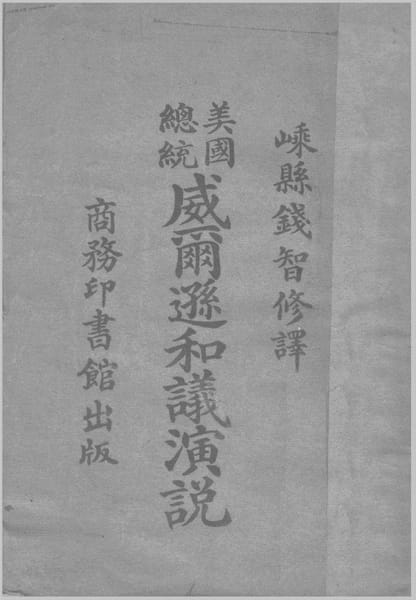 嵊縣錢智修譯
美國總統
威爾遜和議演説
商務印書館出版